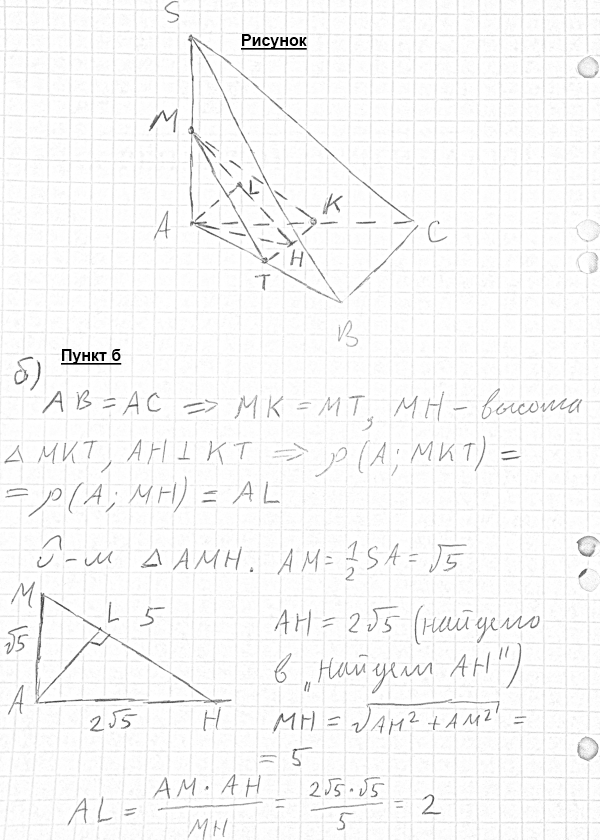 S
Рисунок
M
L
K
A
C
H
T
B
Пункт б
б)
AB = AC => MK = MT, MH - высота
△ MKT, AH ⊥ KT => ρ(A; MKT) =
= ρ(A; MH) = AL
б-м △ AMH. AM = 1/2 SA = √5
M
L 5
√5
A
2√5
H
AH = 2√5 (найдено
в „Найдем AH")
MH = √(AH² + AM²) =
= 5
AL = AM · AH / MH = 2√5·√5 / 5 = 2